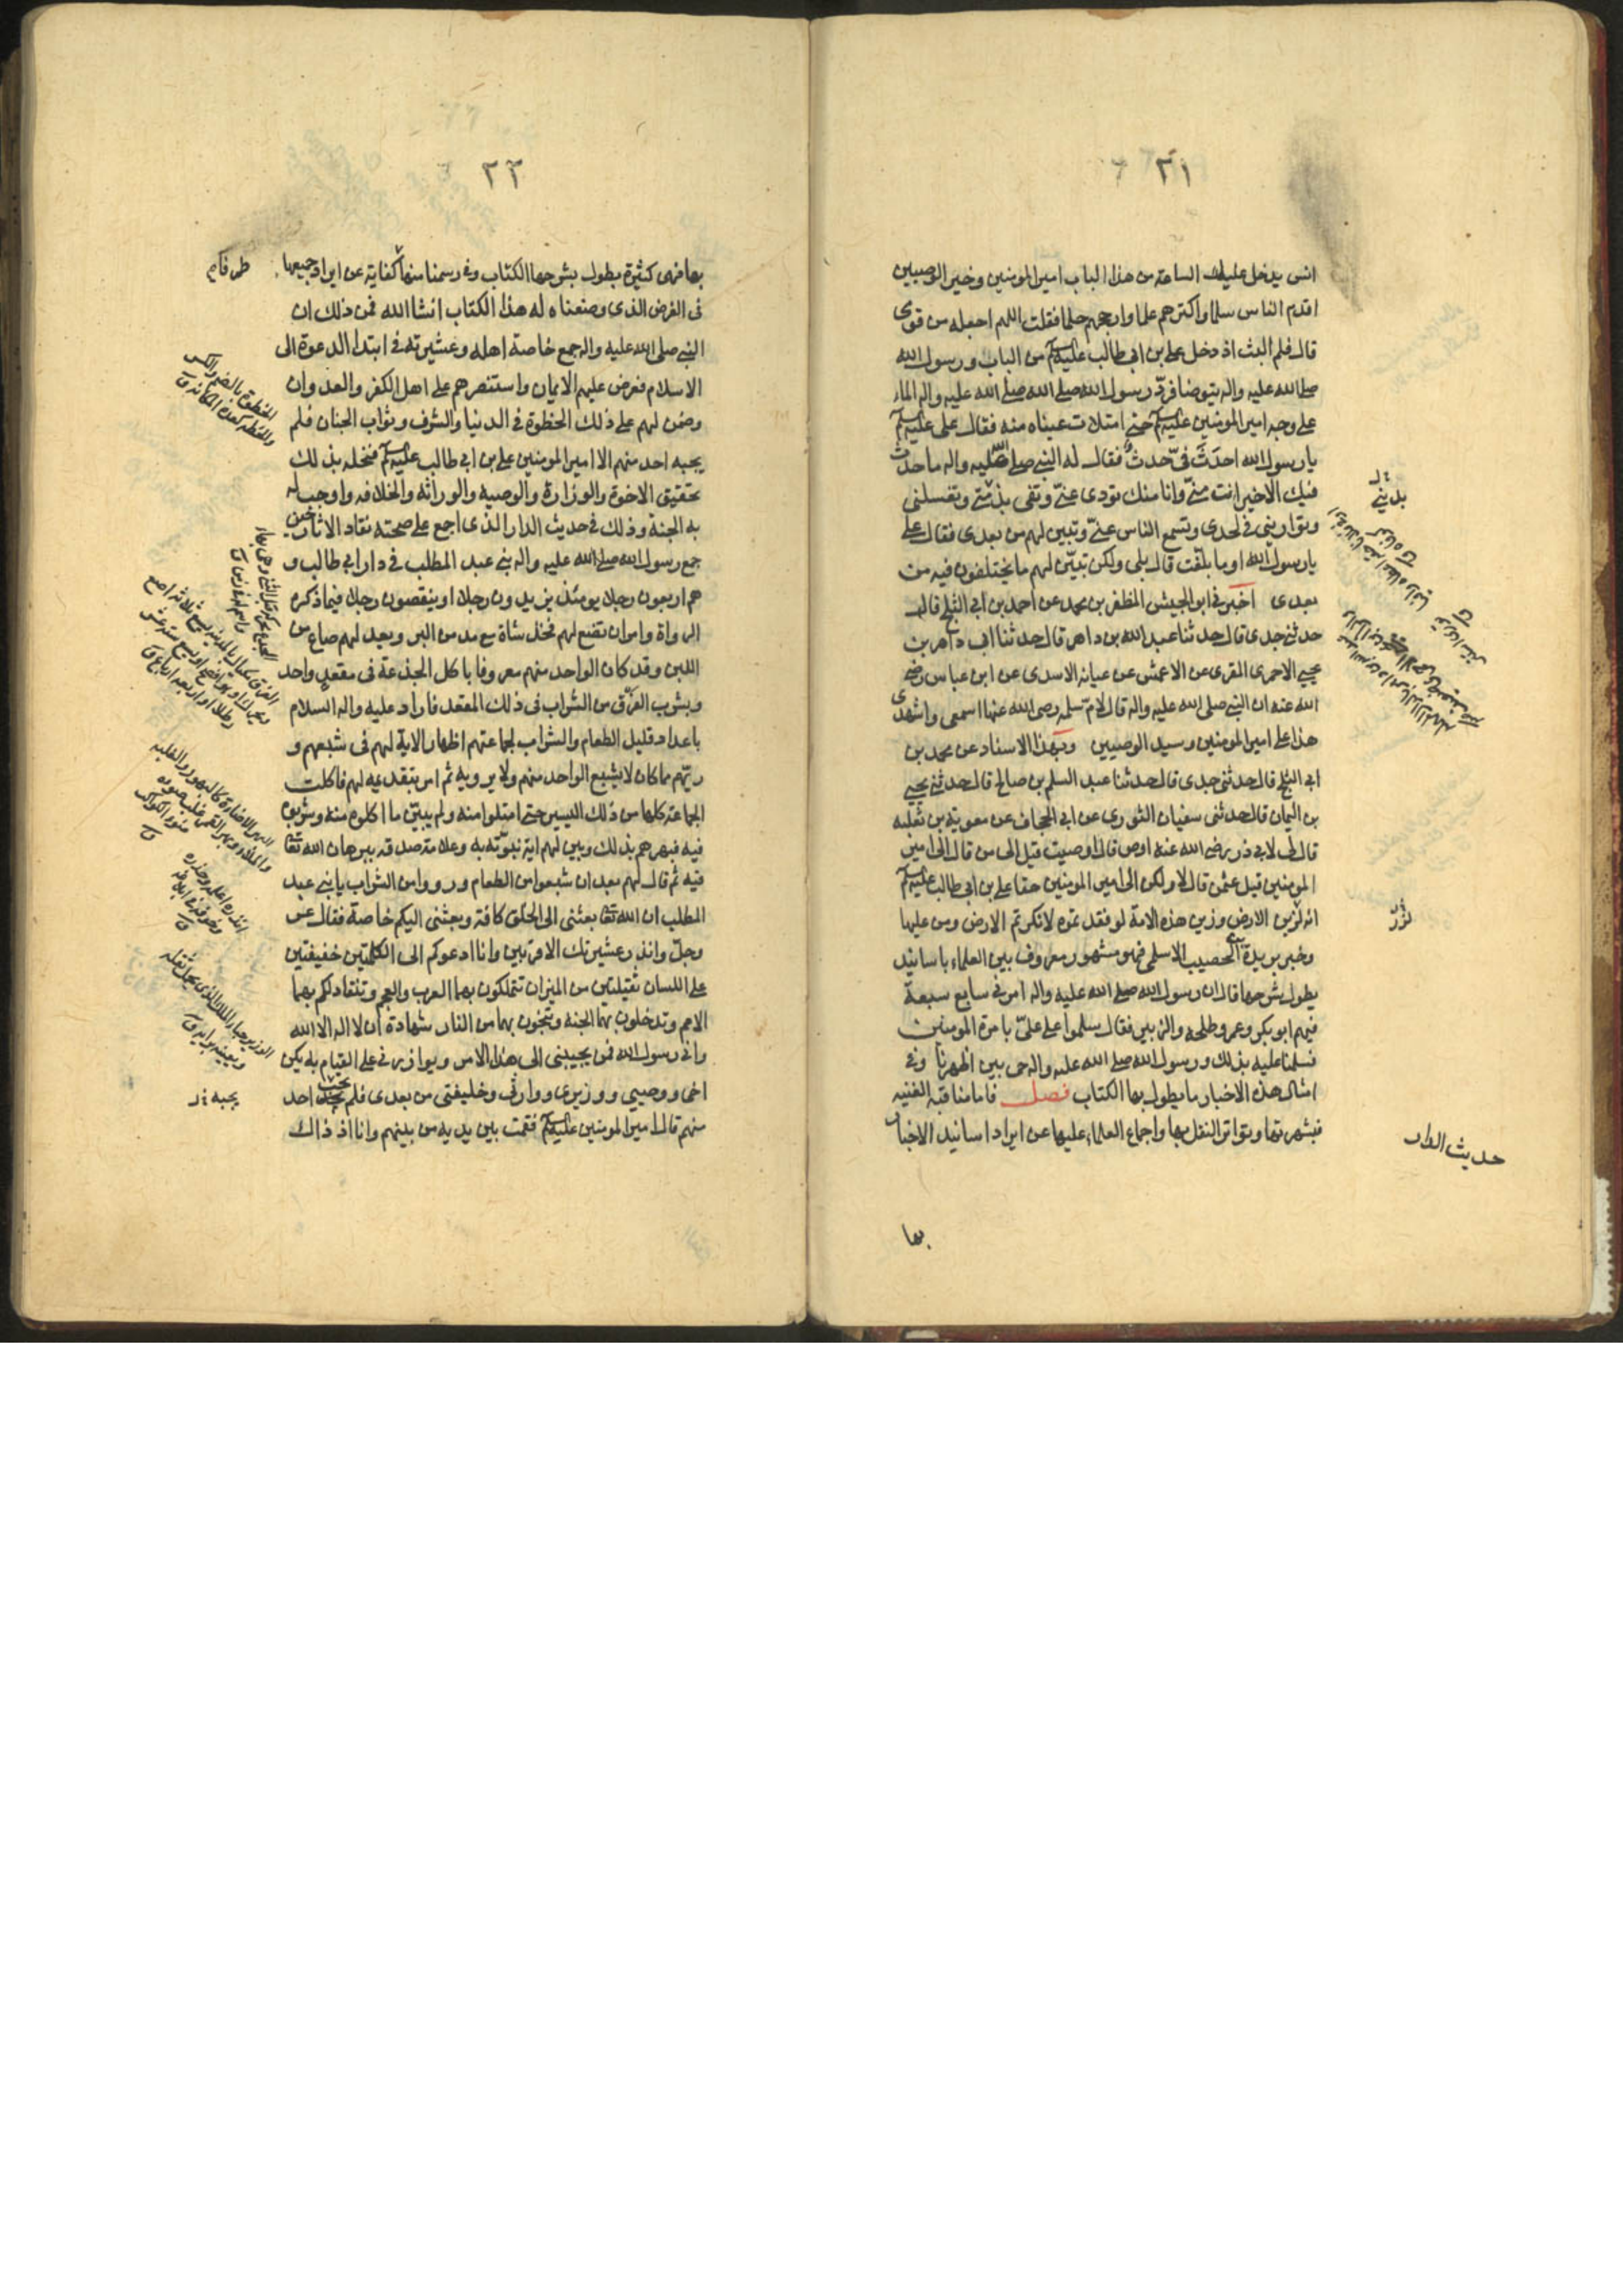 ٣١
انس يدخل عليك الساعة من هذا الباب امير المومنين وخير الوصيين
اقدم الناس سلما واكثرهم علما وارجحهم حلما فقلت اللهم اجعله من قومى
قال فلم البث اذ دخل على بن ابى طالب عليه السلم من الباب ورسول الله
صلى الله عليه واله يتوضا فرد رسول الله صلى الله صلى الله عليه واله الماء
على وجه امير المومنين عليه السلم حتى امتلات عيناه منه فقال على عليه السلم
يا رسول الله احدث فىّ حدث فقال له النبى صلى الله عليه واله ما حدث
فيك الا خير انت منى وانا منك تودى عنى وتفى بذمتى وتغسلنى
وتوارينى فى لحدى وتسمع الناس عنى وتبين لهم من بعدى فقال على
يا رسول الله او ما بلغت قال بلى ولكن تبيّن لهم ما يختلفون فيه من
بعدى اخبرنى ابو الجيش المظفر بن محمد عن احمد بن ابى الثلج قال
حدثنى جدى قال حدثنا عبد الله بن داهر قال حدثنا ابى داهر بن
يحيى الاحمرى المقرى عن الاعمش عن عبايه الاسدى عن ابن عباس رضى
الله عنه ان النبى صلى الله عليه واله قال لام سلمه رضى الله عنها اسمعى واشهدى
هذا على امير المومنين وسيد الوصيين وبهذا الاسناد عن محمد بن
ابى الثلج قال حدثنى جدى قال حدثنا عبد السلم بن صالح قال حدثنى يحيى
بن اليمان قال حدثنى سفيان الثورى عن ابى الحجاف عن معوية بن ثعلبه
قال قيل لابى ذر رضى الله عنه اوص قال اوصيت قيل الى من قال الى امير
المومنين قيل عثمن قال لا ولكن الى امير المومنين حقا على بن ابى طالب عليه السلم
انه لزين الارض وزين هذه الامة لو فقد تموه لانكرتم الارض ومن عليها
وخبر بريدة بن الحصيب الاسلمى فهو مشهور معروف بين العلماء باسانيد
يطول شرحها قال ان رسول الله صلى الله عليه واله امرنى سابع سبعة
فيهم ابو بكر وعمر وطلحه والزبير فقال سلموا على علىّ بامرة المومنين
فسلمنا عليه بذلك ورسول الله صلى الله عليه واله حى بين اظهرنا وفى
امثال هذه الاخبار ما يطول بها الكتاب فصل فاما مناقبه الغنيه
فبشهرتها وتواتر النقل بها واجماع العلماء عليها عن ايراد اسانيد الاخبار
بها
حديث الدار
٣٢
بها فهى كثيرة يطول بشرحها الكتاب وفى رسمنا منها كفاية عن ايراد جميعها
فى الغرض الذى وضعناه له هذا الكتاب انشا الله فمن ذلك ان
النبى صلى الله عليه واله جمع خاصة اهله وعشيرته فى ابتدا الدعوة الى
الاسلام فعرض عليهم الايمان واستنصرهم على اهل الكفر والعدوان
وضمن لهم على ذلك الحظوة فى الدنيا والشرف وثواب الجنان فلم
يجبه احد منهم الا امير المومنين على بن ابى طالب عليه السلم فنحله بذلك
تحقيق الاخوة والوزارة والوصيه والوراثه والخلافه واوجب له
به الجنة وذلك فى حديث الدار الذى اجمع على صحته نقاد الاثار حين
جمع رسول الله صلى الله عليه واله بنى عبد المطلب فى دار ابى طالب و
هم اربعون رجلا يومئذ يزيدون رجلا او ينقصون رجلا فيما ذكره
الرواة وامر ان تصنع لهم فخذ شاة مع مد من البر ويعد لهم صاع من
اللبن وقد كان الواحد منهم معروفا باكل الجذعة فى مقعد واحد
وبشرب الفرق من الشراب فى ذلك المقعد فاراد عليه واله السلام
باعداد قليل الطعام والشراب لجماعتهم اظهار الاية لهم فى شبعهم و
ريّهم ما كان لا يشبع الواحد منهم ولا يرويه ثم امر بتقديمه لهم فاكلت
الجماعة كلها من ذلك اليسير حتى امتلوا منه ولم يبيّن ما اكلوه منه وشربوه
فيه فبهرهم بذلك وبين لهم اية نبوّته به وعلامة صدقه ببرهان الله تعا
فيه ثم قال لهم بعد ان شبعوا من الطعام ورووا من الشراب يا بنى عبد
المطلب ان الله تعا بعثنى الى الخلق كافة وبعثنى اليكم خاصة فقال عز
وجلّ وانذر عشيرتك الاقربين وانا ادعوكم الى الكلمتين خفيفتين
على اللسان ثقيلتين من الميزان تتملكون بهما العرب والعجم وتنقاد لكم بهما
الامم وتدخلون بهما الجنه وتنجون بهما من النار شهادة ان لا اله الا الله
وانى رسول الله فمن يجيبنى الى هذا الامر ويوازرنى على القيام به يكن
اخى ووصيى ووزيرى ووارثى وخليفتى من بعدى فلم يجب احد
منهم قال امير المومنين عليه السلم فقمت بين يديه من بينهم وانا اذ ذاك